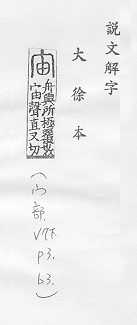 說文解字
大徐本
宙
舟輿所極覆也从
宀由聲直又切
(宀部.
V7下.
P3.
b3.)